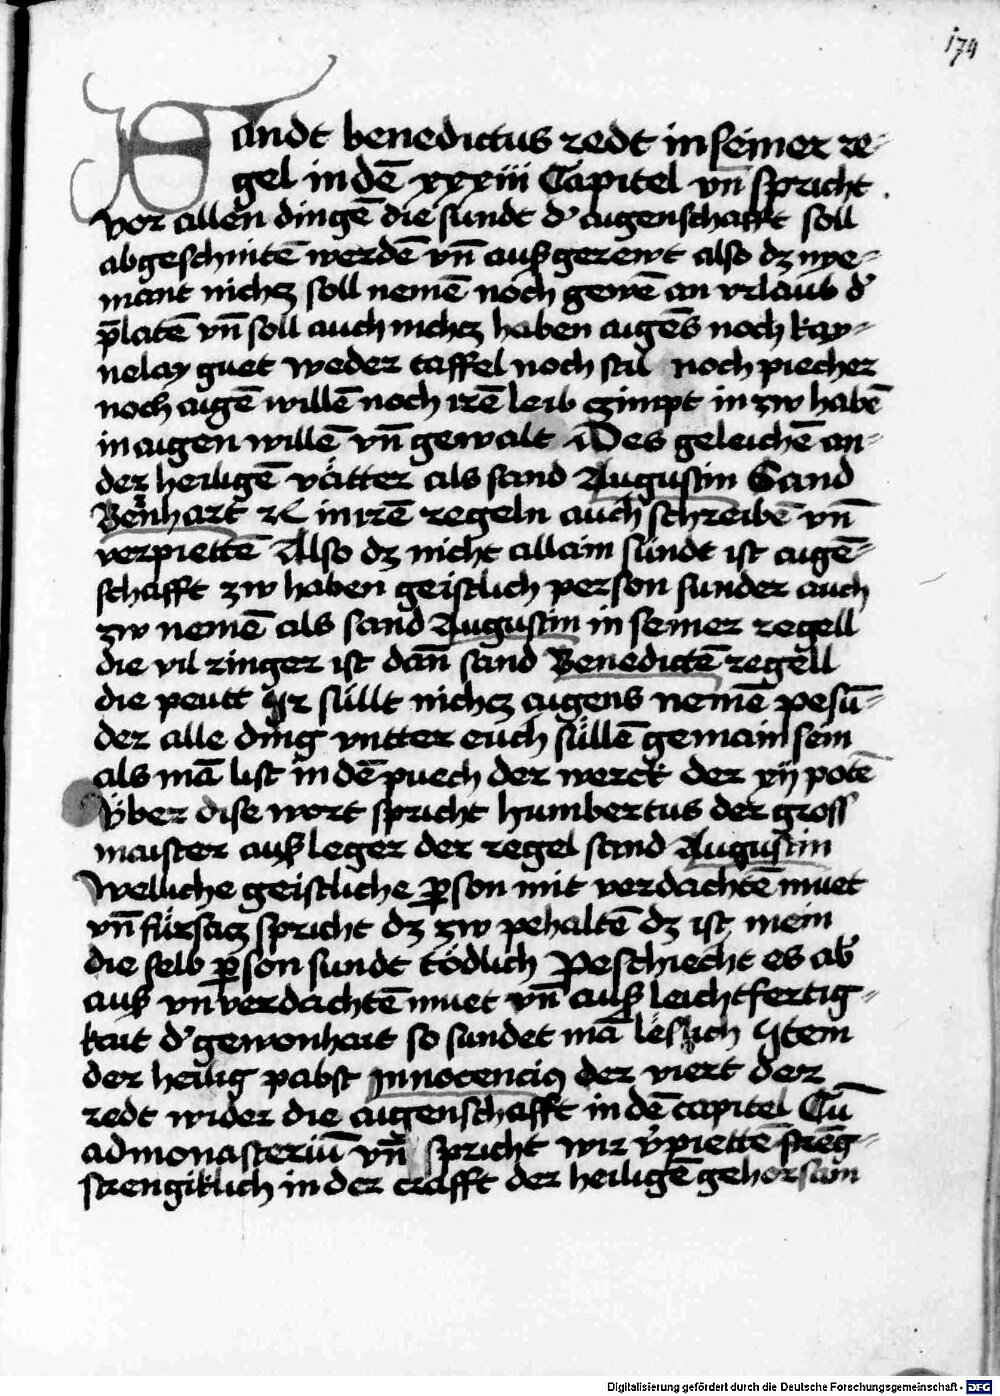 174
Sandt benedictus redt in seiner re-
gel in dē xxxiii Capitel vn̄ spricht .
Vor allen dingē die sundt d' aigenschafft soll
abgeschnitē werdē vn̄ ausgerewt also dz nye-
mant nichcz soll nemē noch gewē an vrlaub d'
p̄latē vn̄ soll auch nichcz haben aigēs noch kay-
nelay guet weder taffel noch stil noch piecher
noch aigē willē noch irē leib czimpt in zw habē
in aigen willē vn̄ gewalt Des geleichē an-
der heiligē vätter als sand Augustin Sand
Bernhart rc in irē regeln auch schreibē vn̄
verpiettē Also dz nicht allain sündt ist aigē-
schafft zw haben geistlich person sunder auch
zw nemē als sand Augustin in seiner regell
die vil ringer ist dan̄ sand Benedictē regell
die peutt Ir süllt nichcz aigens nemē pesū-
der alle ding vntter euch süllē gemain sein
als mā list in dē puech der werck der xij potē
Vber dise wort spricht humbertus der gross
maister ausleger der regel sand Augustin
Welliche geistliche p̲son mit verdachtē muet
vn̄ fürsacz spricht dz zw pehaltē dz ist mein
die selb p̲son sundt tödlich Peschiecht es ab'
aus vnverdachtē muet vn̄ aus leichtfertig-
kait d' gewonhait so sundet mā leslich Item
der heilig pabst Innocencius der viert der
redt wider die aigenschafft in dē capitel Cū
ad monasteriū vn̄ spricht wir v'piettē streng-
strengiklich in der crafft der heiligē gehorsam
Digitalisierung gefördert durch die Deutsche Forschungsgemeinschaft - DFG